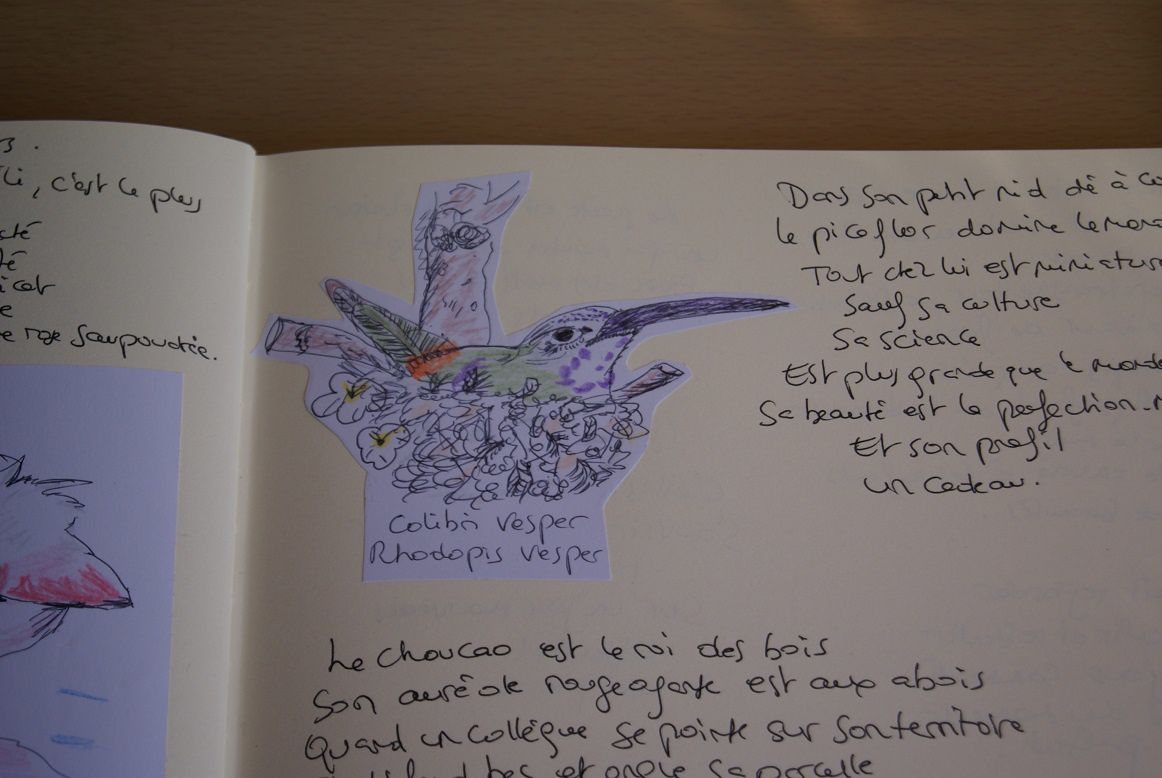 c'est le plus
saupoudrée.
Colibri Vesper
Rhodopis Vesper
Dans son petit nid dé à
le picaflor domine le
Tout chez lui est
Sauf sa culture
Sa science
Est plus grande que le monde
Sa beauté est la perfection
Et son profil
un cadeau.
Le choucao est le roi des bois
Son auréole est aux abois
Quand un collègue se pointe sur son territoire
et sa parcelle